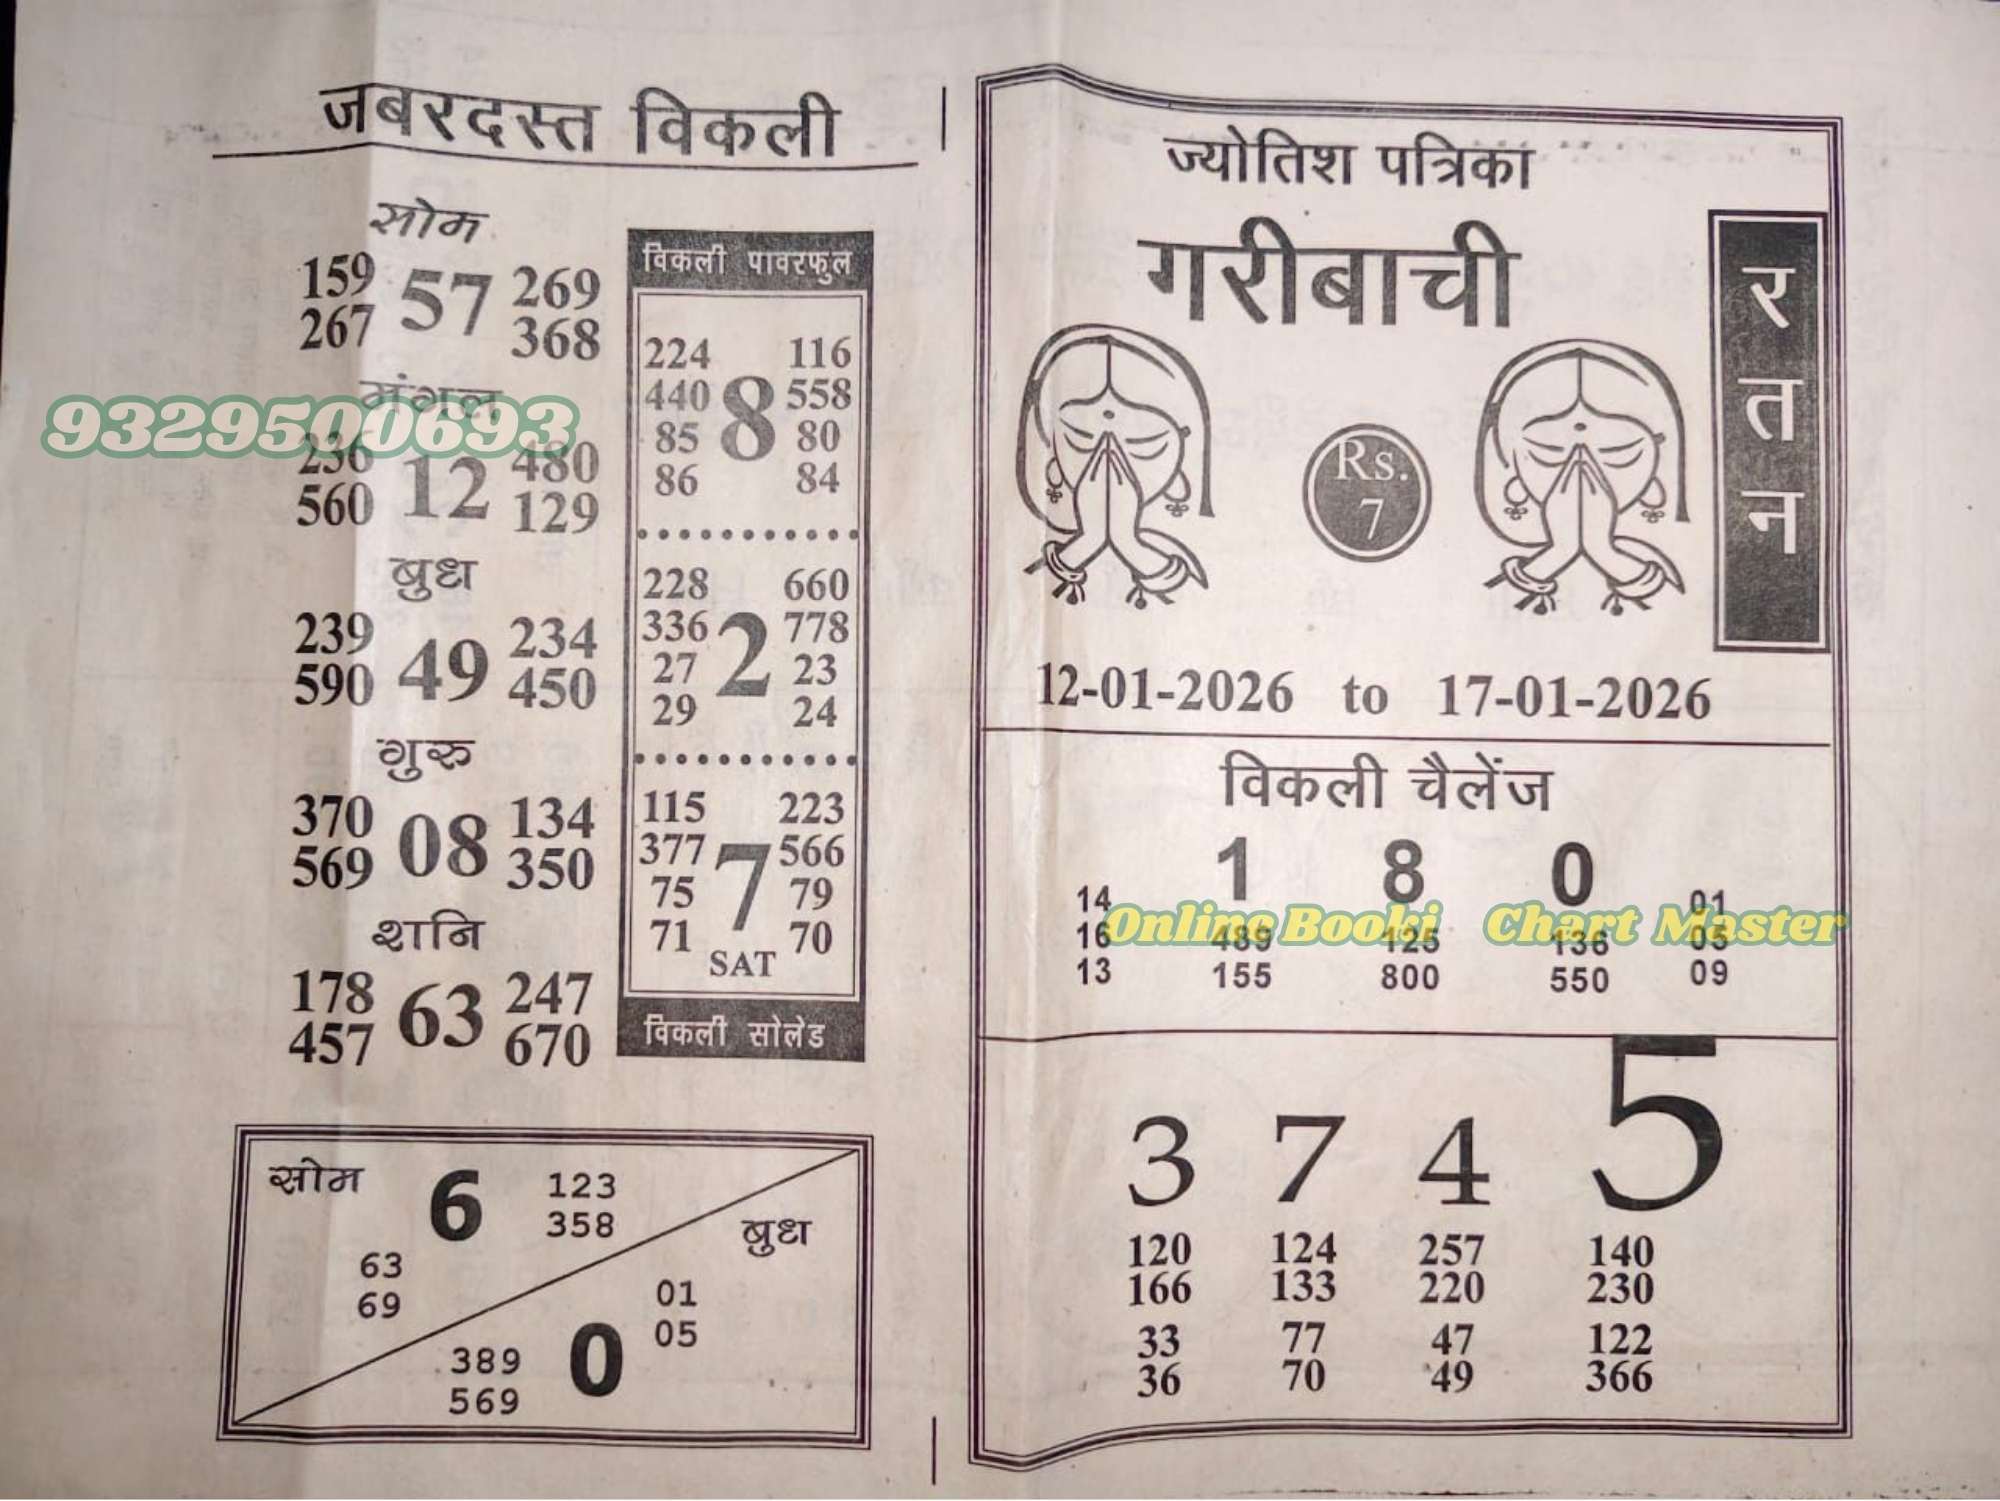 जबरदस्त विकली
सोम
159 57 269
267 368
मंगल
9329500693
236 12 480
560 129
बुध
239 49 234
590 450
गुरु
370 08 134
569 350
शनि
178 63 247
457 670
विकली पावरफुल
224 116
440 8 558
85 80
86 84
228 660
336 2 778
27 23
29 24
115 223
377 7 566
75 79
71 70
SAT
विकली सोलेड
सोम 6 123
358
63
69
बुध
01
05
389 0
569
ज्योतिश पत्रिका
गरीबाची
रतन
Rs.
7
12-01-2026 to 17-01-2026
विकली चैलेंज
1 8 0
14 01
Online Booki Chart Master
16 489 125 136 05
13 155 800 550 09
3 7 4 5
120 124 257 140
166 133 220 230
33 77 47 122
36 70 49 366